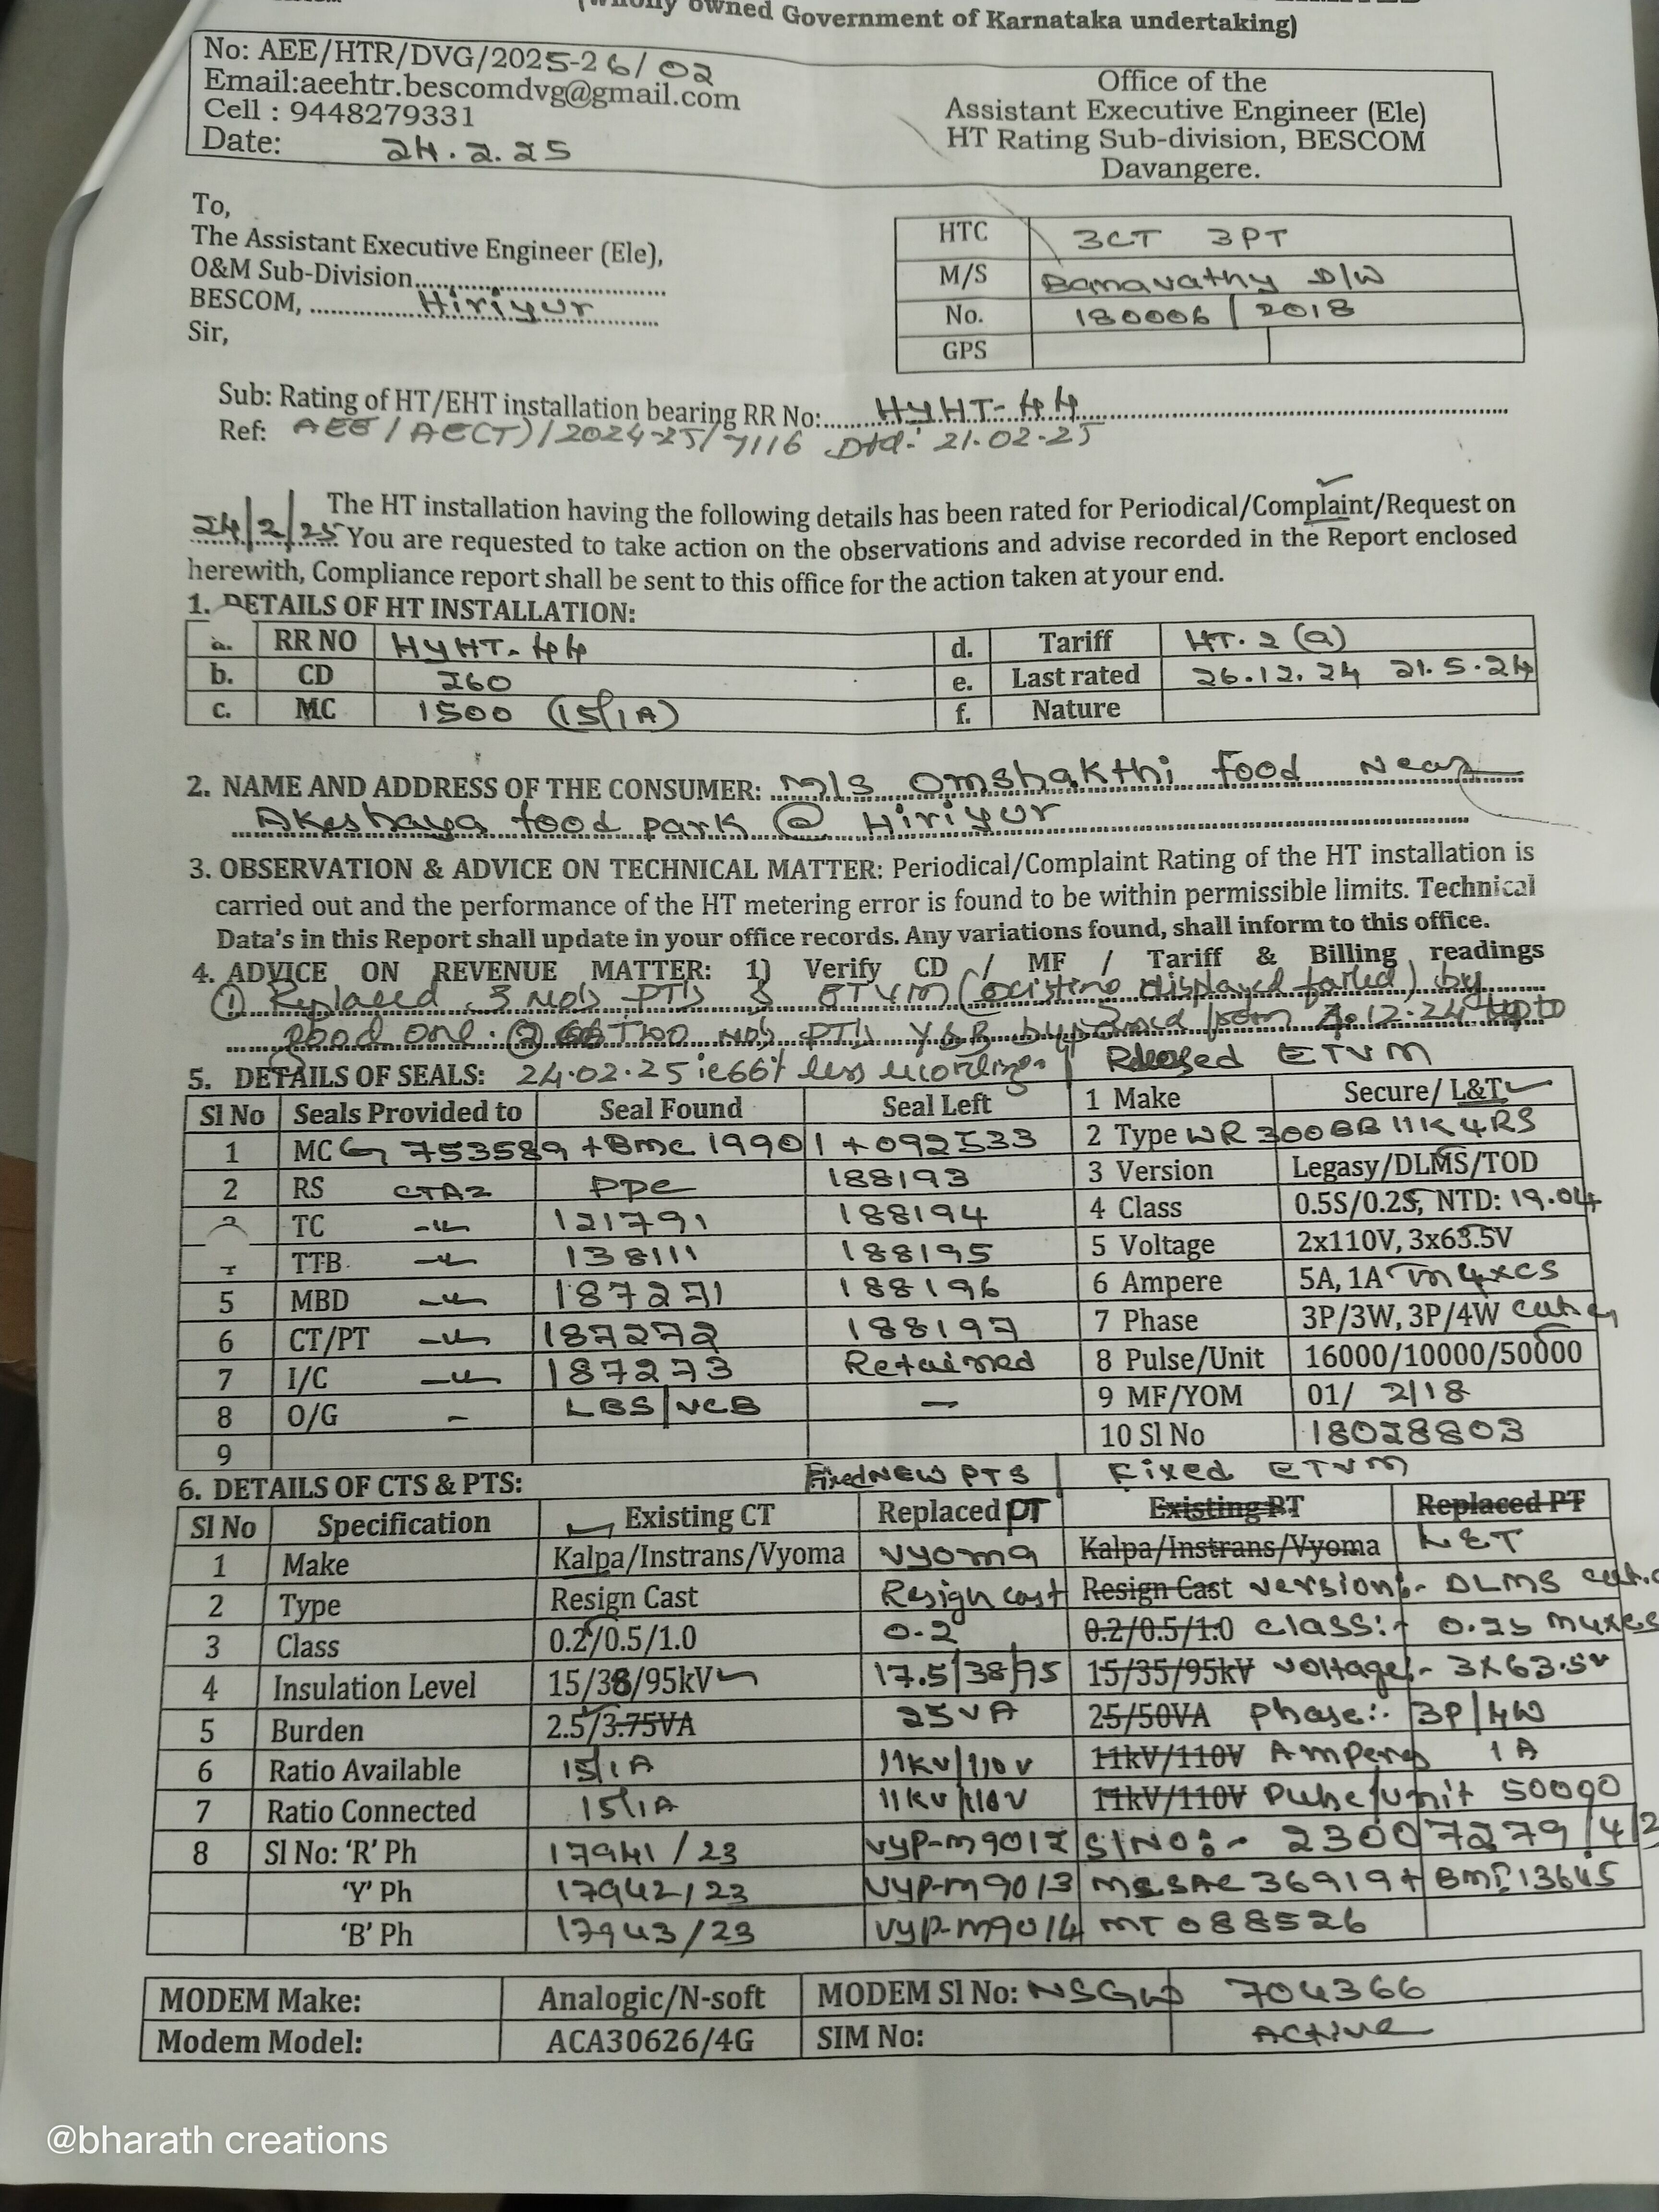 (Wholly owned Government of Karnataka undertaking)
No: AEE/HTR/DVG/2025-26/02
Email:aeehtr.bescomdvg@gmail.com
Cell : 9448279331
Date: 24.2.25
Office of the
Assistant Executive Engineer (Ele)
HT Rating Sub-division, BESCOM
Davangere.
To,
The Assistant Executive Engineer (Ele),
O&M Sub-Division
BESCOM, Hiriyur
Sir,
HTC 3CT 3PT
M/S Banavathy D/W
No. 180006 / 2018
GPS
Sub: Rating of HT/EHT installation bearing RR No: HYHT-44
Ref: AEE/AE(T)/2024-25/7116 Dtd: 21.02.25
The HT installation having the following details has been rated for Periodical/Complaint/Request on
24/2/25 You are requested to take action on the observations and advise recorded in the Report enclosed
herewith, Compliance report shall be sent to this office for the action taken at your end.
1. DETAILS OF HT INSTALLATION:
a. RR NO HYHT-44 d. Tariff HT.2(a)
b. CD 260 e. Last rated 26.12.24 21.5.24
c. MC 1500 (15/1A) f. Nature
2. NAME AND ADDRESS OF THE CONSUMER: M/s Omshakthi food Near
Akeshaya food park @ Hiriyur
3. OBSERVATION & ADVICE ON TECHNICAL MATTER: Periodical/Complaint Rating of the HT installation is
carried out and the performance of the HT metering error is found to be within permissible limits. Technical
Data's in this Report shall update in your office records. Any variations found, shall inform to this office.
4. ADVICE ON REVENUE MATTER: 1) Verify CD / MF / Tariff & Billing readings
① Replaced 3 No's PT's & ETVM (existing displayed failed) by
good one. ② Two No's PT's Y&B bypassed from .12.24 upto
24.02.25 ie 66% less recording
5. DETAILS OF SEALS: Released ETVM
Sl No Seals Provided to Seal Found Seal Left 1 Make Secure/ L&T
1 MC 753589 + BMC 19901 + 092533 2 Type WR300BB11K4RS
2 RS CTA2 PPC 188193 3 Version Legasy/DLMS/TOD
TC 121791 188194 4 Class 0.5S/0.2S, NTD: 19.04
TTB 138111 188195 5 Voltage 2x110V, 3x63.5V
5 MBD 187271 188196 6 Ampere 5A, 1A
6 CT/PT 187272 188197 7 Phase 3P/3W, 3P/4W
7 I/C 187273 Retained 8 Pulse/Unit 16000/10000/50000
8 O/G - LBS/VCB - 9 MF/YOM 01/ 2/18
9 10 Sl No 18028803
6. DETAILS OF CTS & PTS: Fixed NEW PTS Fixed ETVM
Sl No Specification Existing CT Replaced PT Existing PT Replaced PT
1 Make Kalpa/Instrans/Vyoma Vyoma Kalpa/Instrans/Vyoma L&T
2 Type Resign Cast Resign cast Resign Cast version:- DLMS
3 Class 0.2/0.5/1.0 0.2 0.2/0.5/1.0 class:- 0.2S
4 Insulation Level 15/38/95kV 17.5/38/95 15/35/95kV voltage:- 3x63.5V
5 Burden 2.5/3.75VA 25VA 25/50VA phase:- 3P/4W
6 Ratio Available 15/1A 11KV/110V 11kV/110V Amperes 1A
7 Ratio Connected 15/1A 11KV/110V 11kV/110V Pulse/unit 50000
8 Sl No: 'R' Ph 17941/23 VYP-M9012 Sl No:- 23007279/4/2
'Y' Ph 17942/23 VYP-M9013 36919+
'B' Ph 17943/23 VYP-M9014 MT 088526
MODEM Make: Analogic/N-soft MODEM Sl No: 704366
Modem Model: ACA30626/4G SIM No: Active
@bharath creations